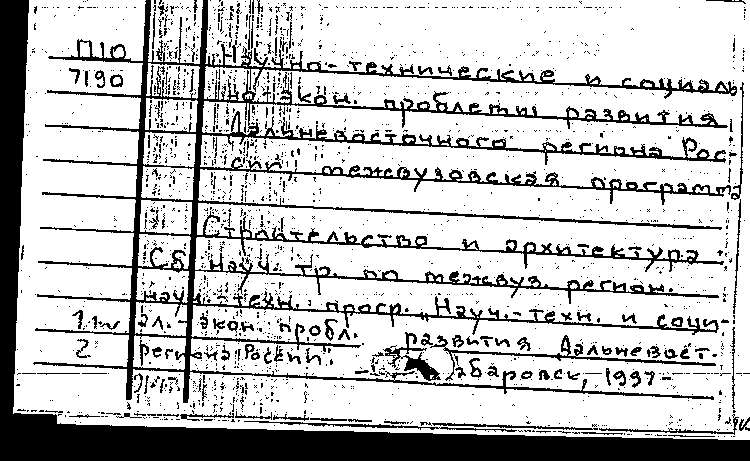 П10
7190
„Научно-технические и социаль-
но-экон. проблемы развития
Дальневосточного региона Рос-
сии", межвузовская программа
Строительство и архитектура:
Сб. науч. тр. по межвуз. регион.
науч.-техн. прогр. „Науч.-техн. и соци-
ал.-экон. пробл. развития Дальневост.
региона России".
баровск, 1997-
2